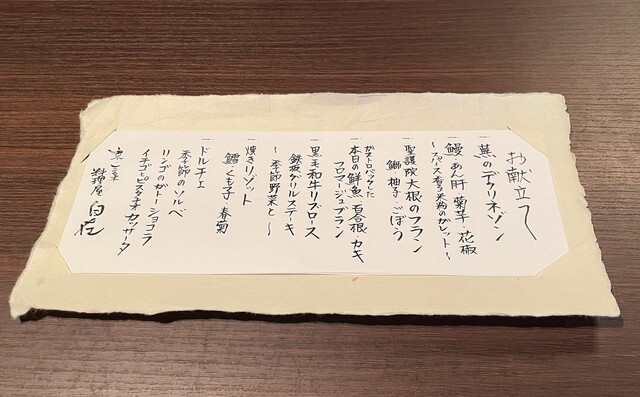 お献立て
一 蕪のデクリネゾン
一 鰻 あん肝 菊芋 花椒
〜スパイス香る米粉のガレット〜
一 聖護院大根のフラン
鰤・柚子・ごぼう
一 ガストロバックした
本日の鮮魚 百合根・カキ
フロマージュブラン
一 黒毛和牛リブロース
鉄板グリルステーキ
〜季節野菜と〜
一 焼きリゾット
鱈・くも子・春菊
一 ドルチェ
季節のソルベ
リンゴのガトーショコラ
イチゴとピスタチオカッサータ
料理屋